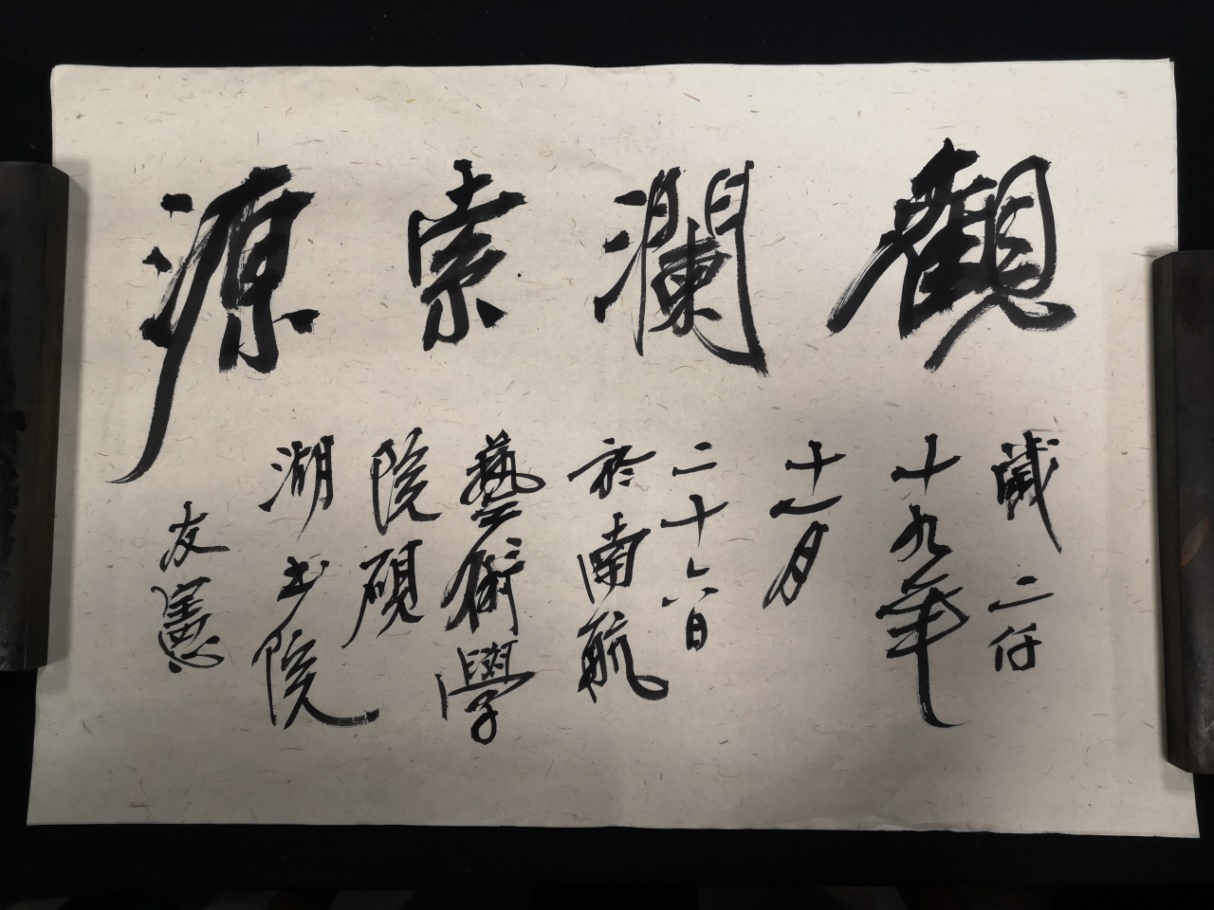 觀瀾索源
歲二仟
十九年
十一月
二十六日
於南航
藝術學
院硯
湖書院
友憲